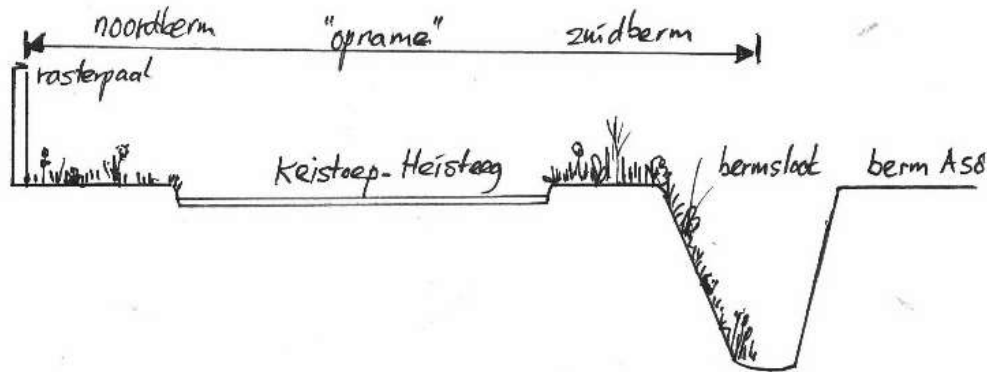 noordberm "opname" zuidberm
rasterpaal
Keistoep-Heisteeg bermsloot berm A58